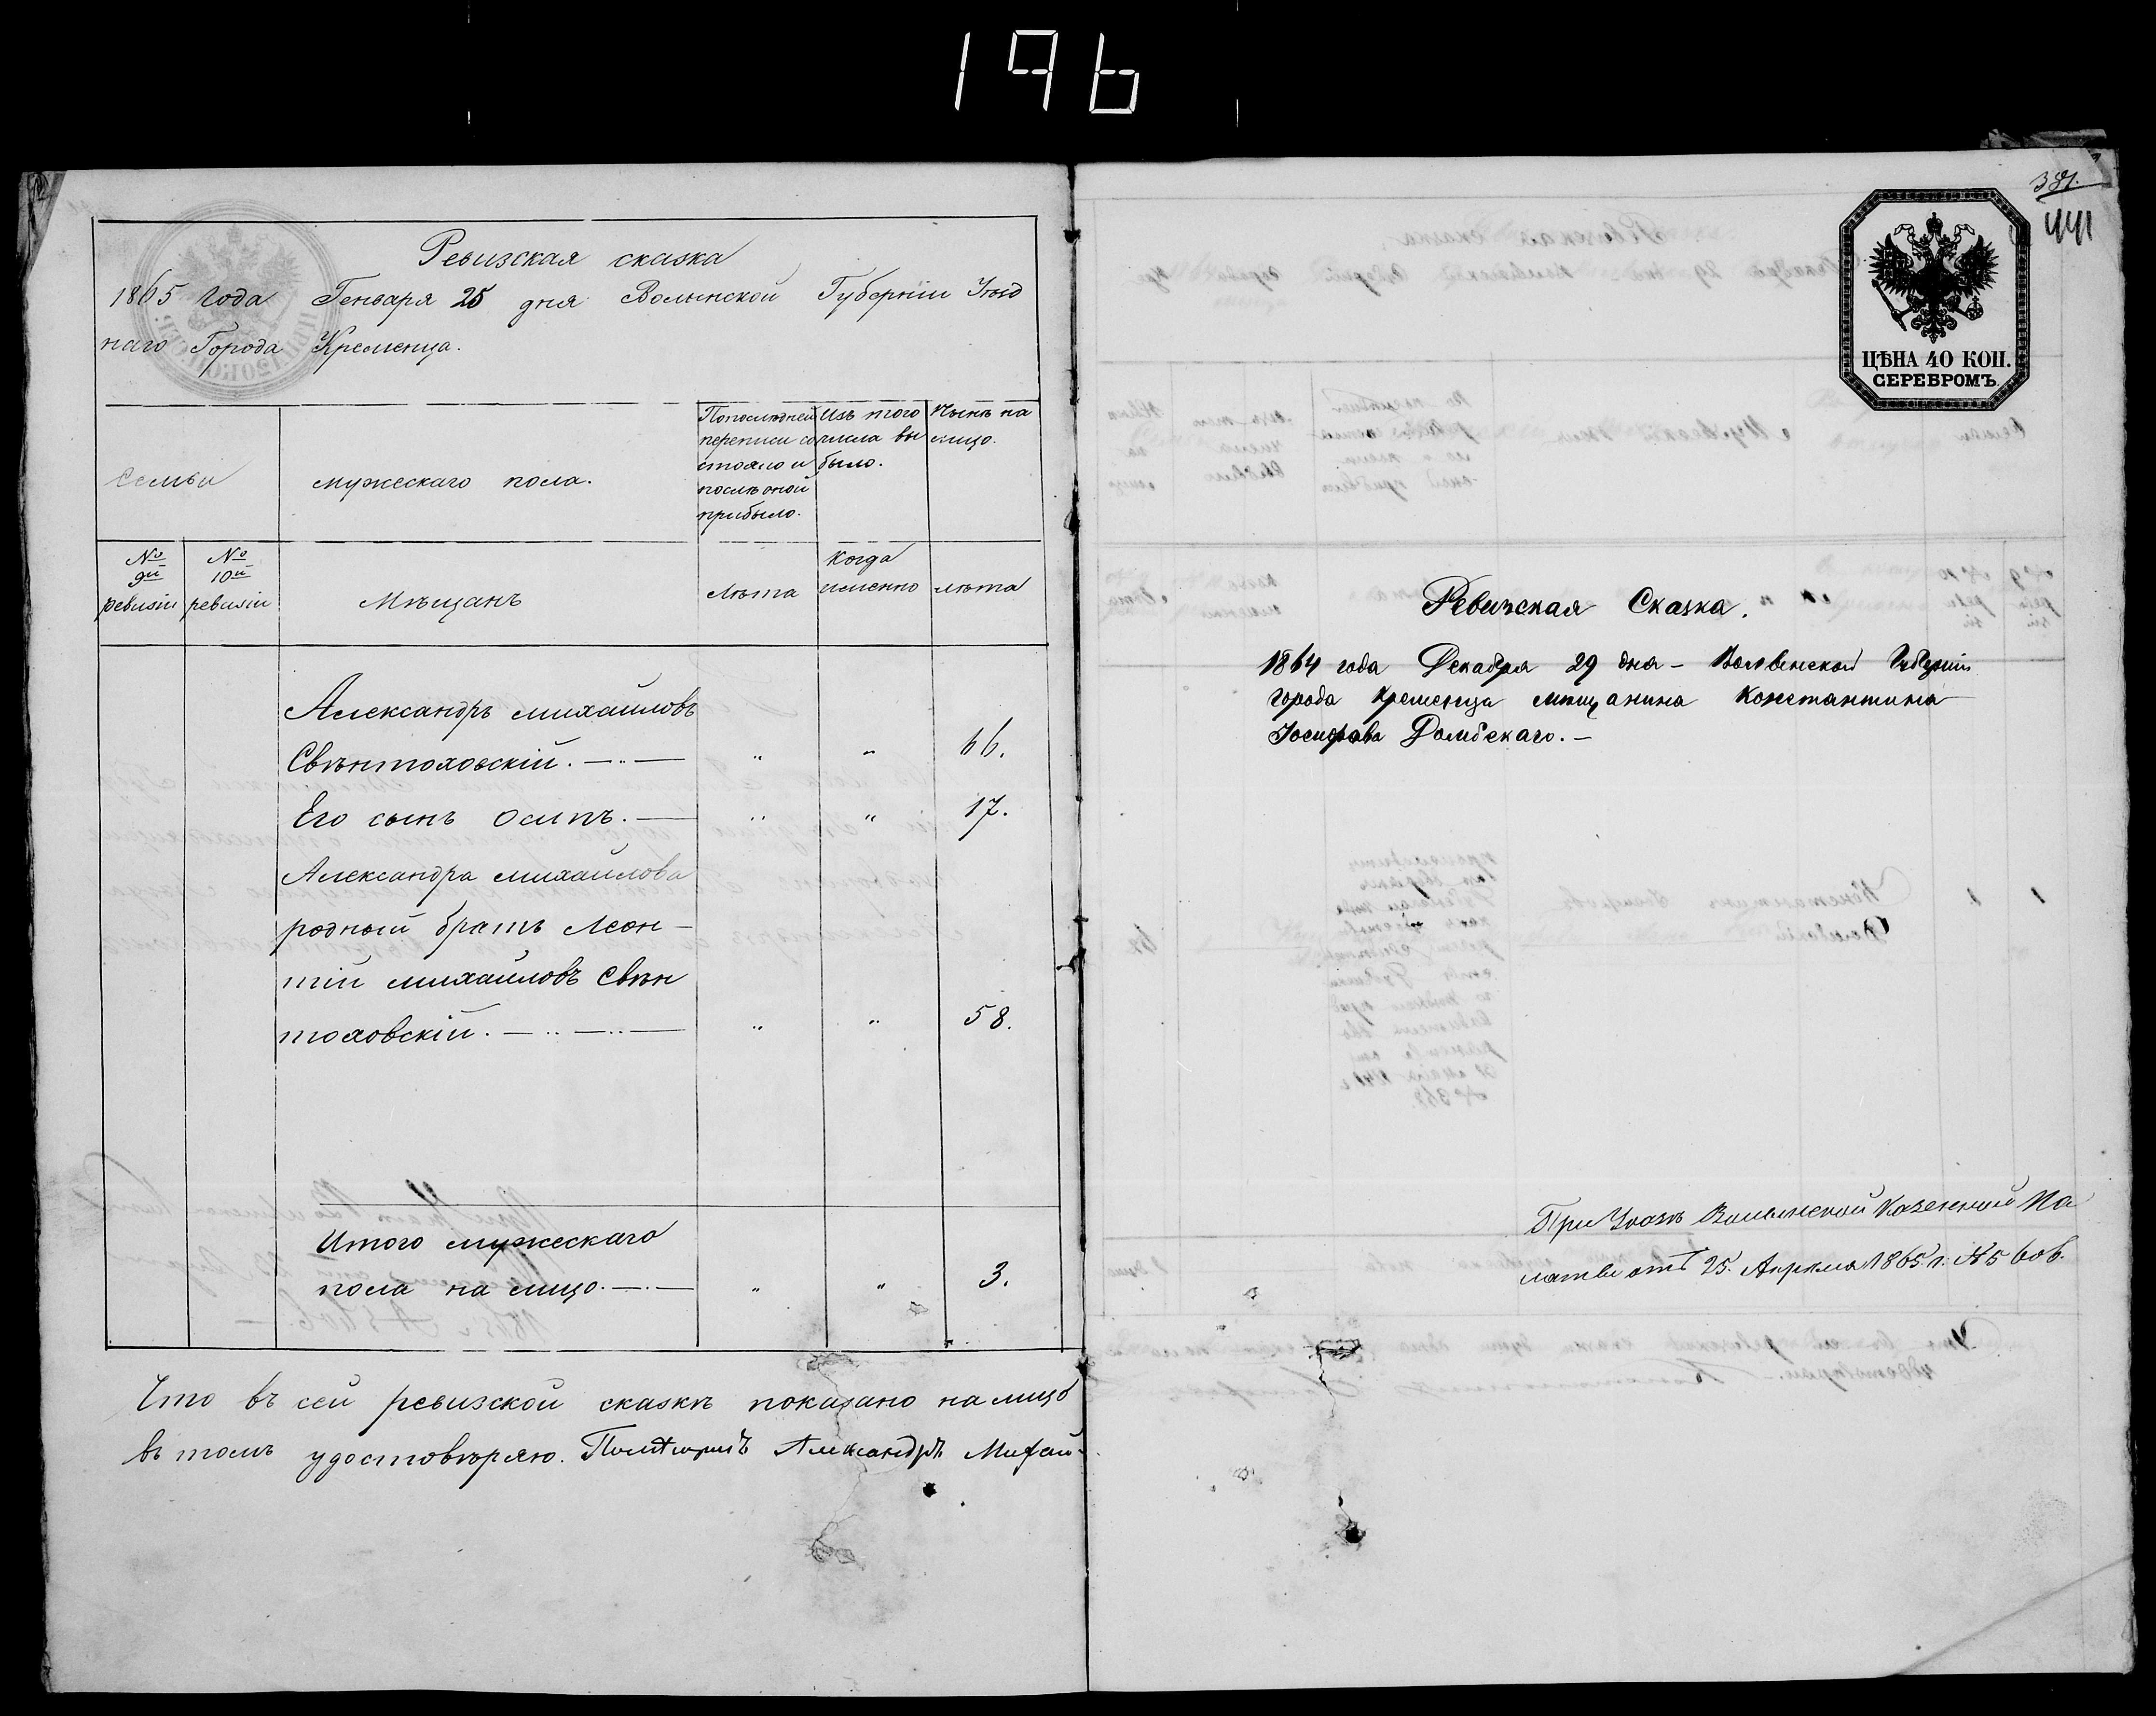 196
Ревизская сказка
1865 года Генваря 25 дня Волынской Губернiи Уѣзд
наго Города Кременца.
Семьи
мужескаго пола.
По последней
переписи со
стояло и
послѣ оной
прибыло.
Изъ того
числа вы
было.
Нынѣ на
лицо.
№ 9й ревизiи
№ 10й ревизiи
Мѣщанъ
лѣта
когда
именно
лѣта
Александръ Михайловъ
Свѣнтоховскiй. 66.
Его сынъ Осипъ. 17.
Александра Михайлова
родный братъ Леон-
тiй Михайловъ Свѣн
тоховскiй. 58.
Итого мужескаго
пола на лицо. 3.
Что въ сей ревизской сказкѣ показано на лицо
въ томъ удостовѣряю. Александръ Михай-
381.
441
ЦѢНА 40 КОП.
СЕРЕБРОМЪ.
Ревизская Сказка.
1864 года Декабря 29 дня - Волынской Губернiи
города Кременца мѣщанина Константина
Iосифова Домбскаго. -
При Указѣ Волынской Казенной Па
латы отъ 25. Апрѣля 1865 г. № 5606.